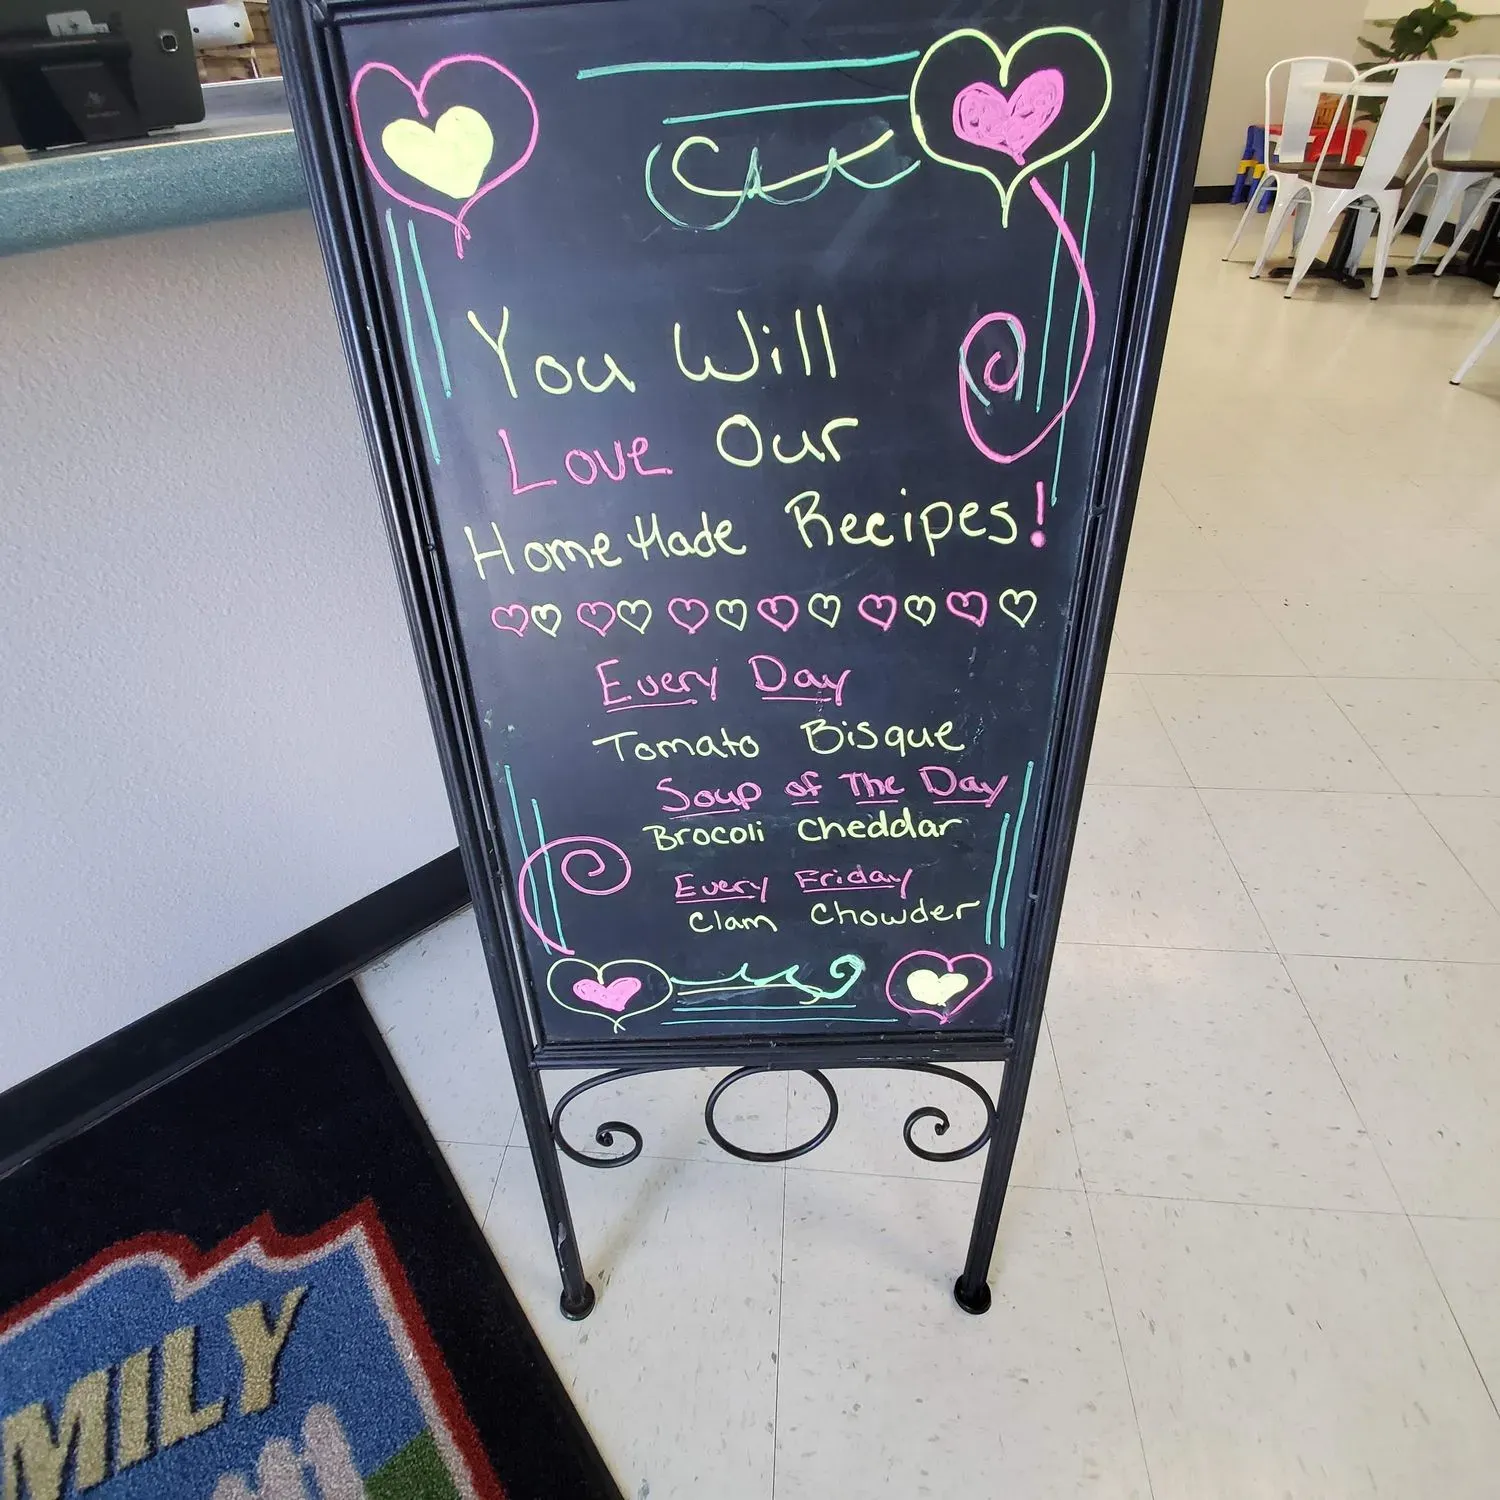 You Will
Love Our
HomeMade Recipes!
Every Day
Tomato Bisque
Soup of The Day
Brocoli Cheddar
Every Friday
Clam Chowder
MILY